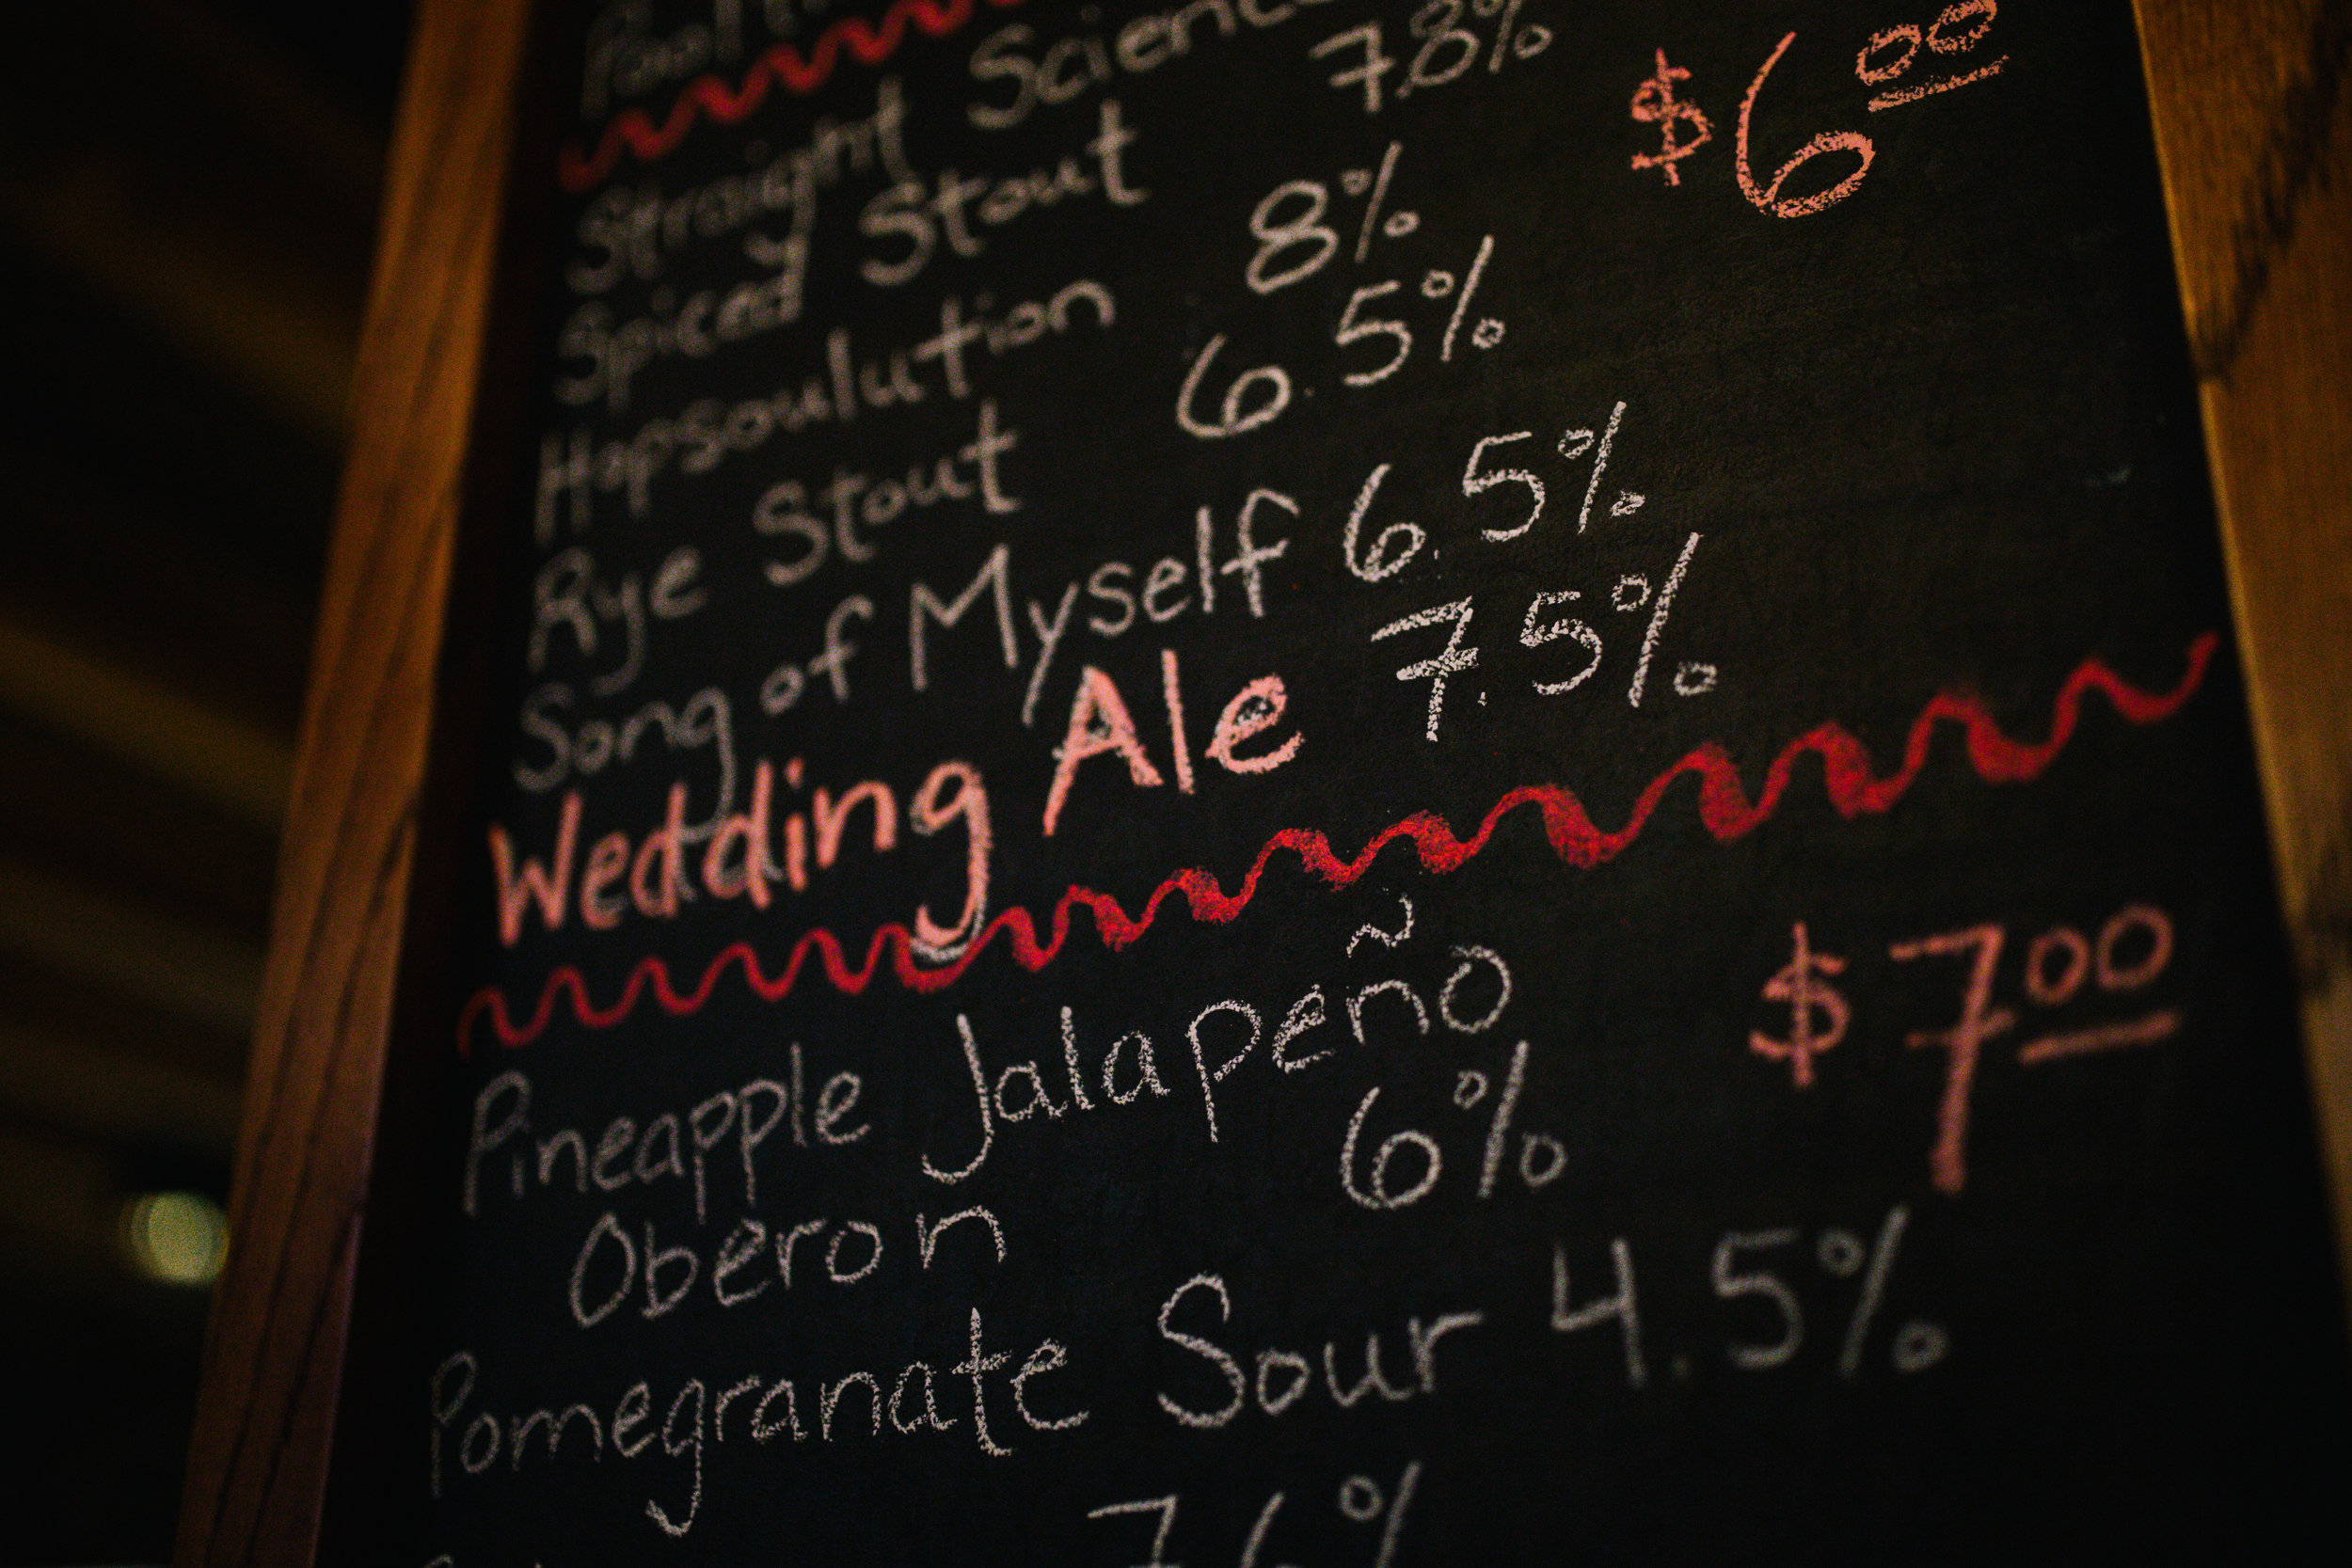 Straight Science
7.8% $6.00
Spiced Stout
Hopsoulution 8%
Rye Stout 6.5%
Song of Myself 6.5%
Wedding Ale 7.5%
Pineapple Jalapeño $7.00
Oberon 6%
Pomegranate Sour 4.5%